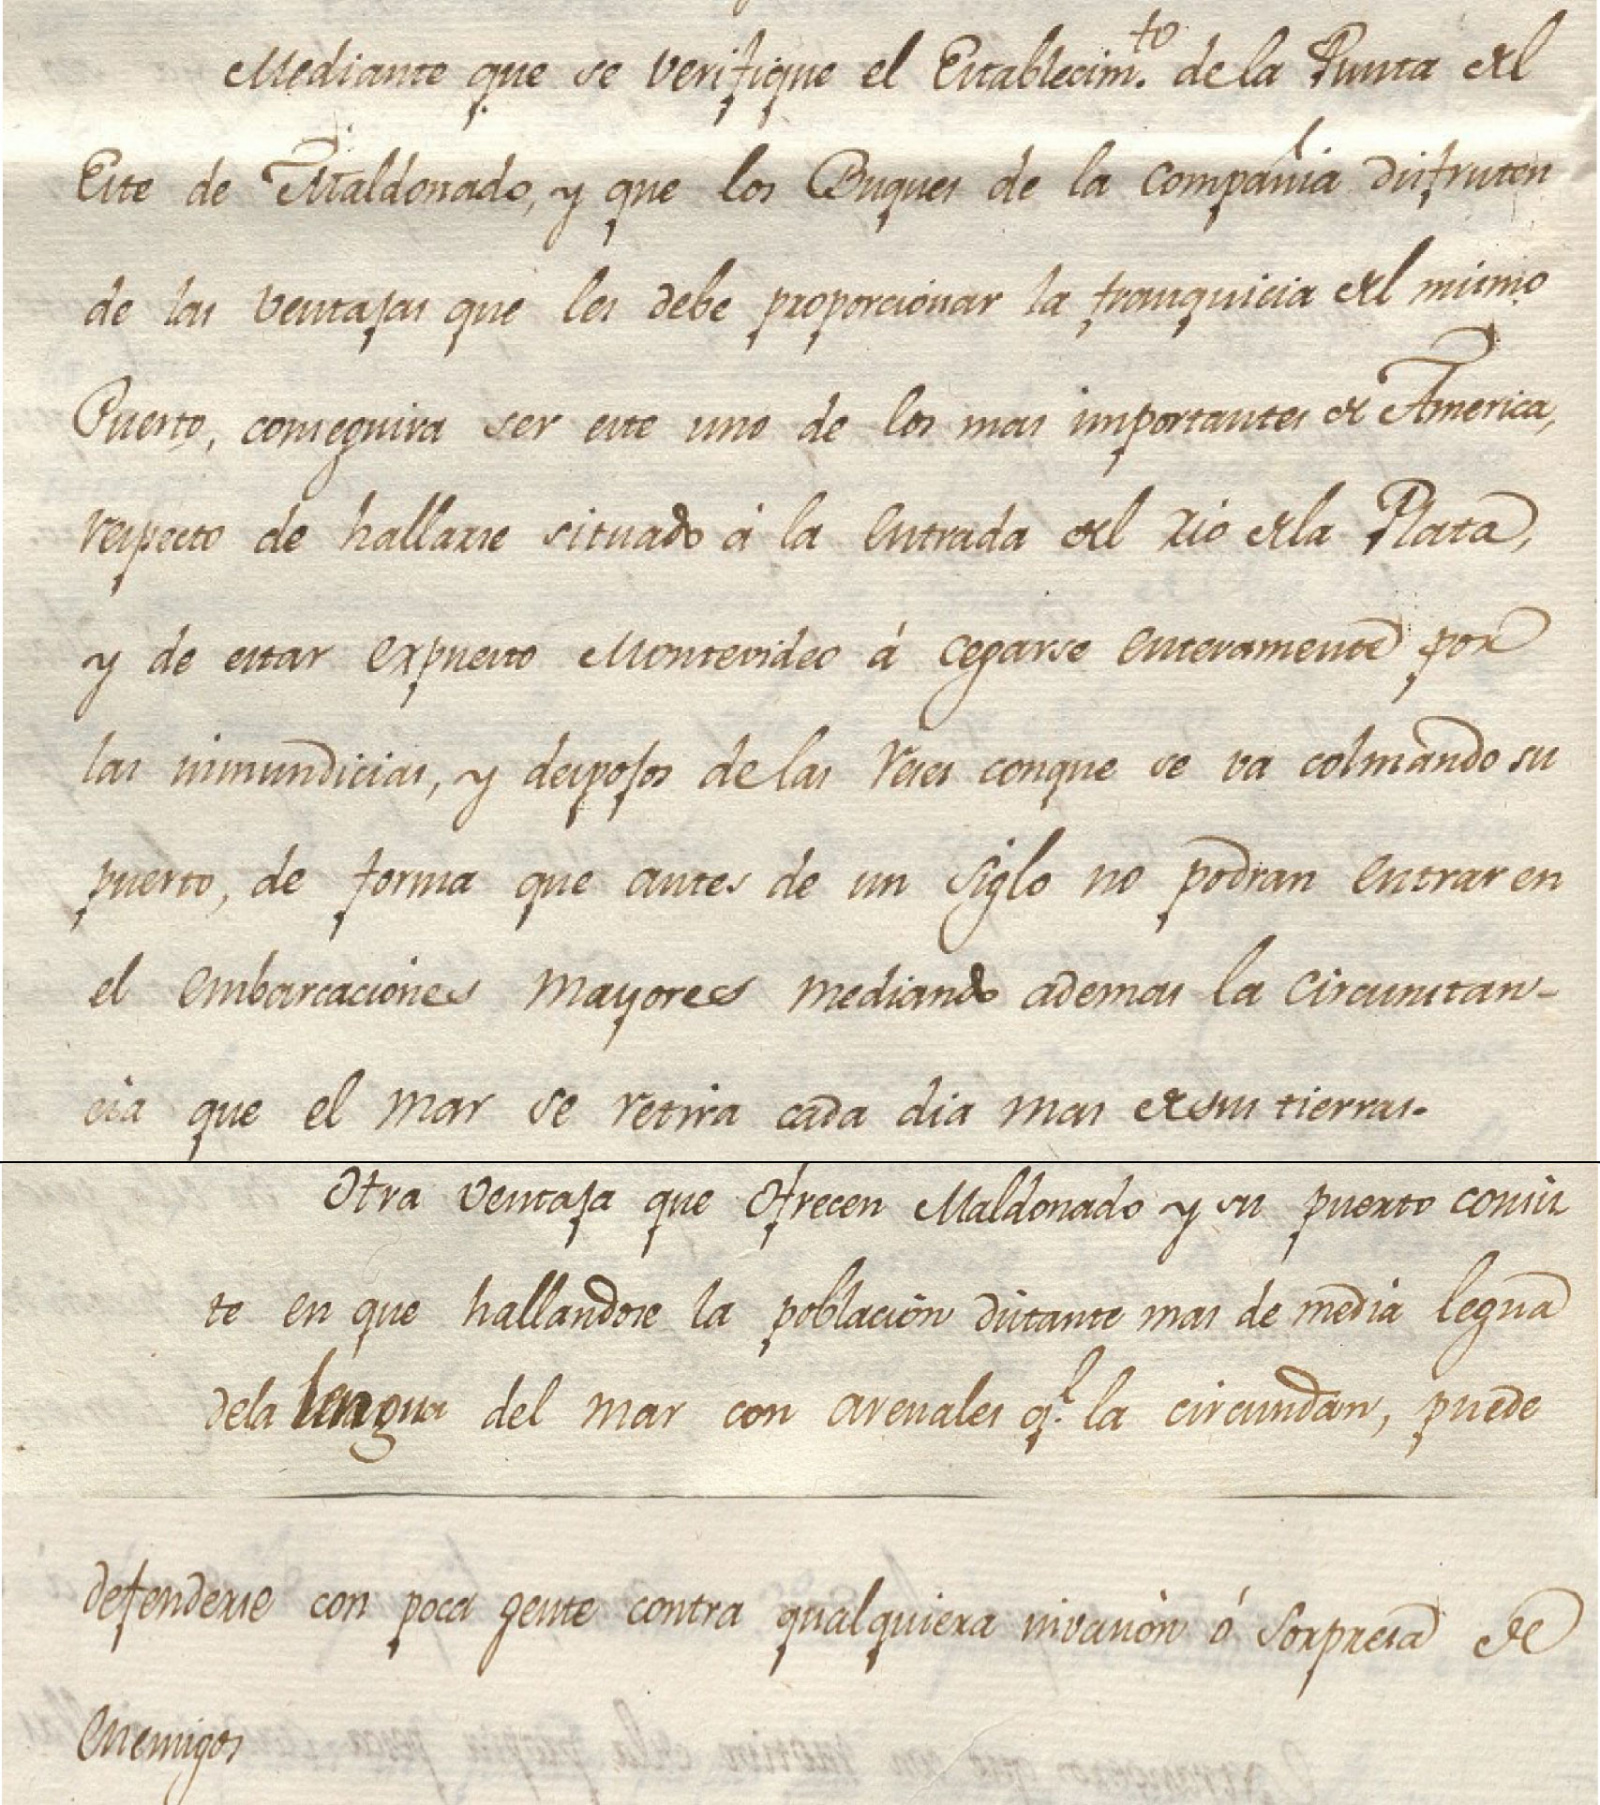 Mediante que se verifique el Establecim.to de la Punta del
Este de Maldonado, y que los Buques de la Compañia disfruten
de las ventajas que les debe proporcionar la franquicia del mismo
Puerto, conseguira ser este uno de los mas importantes de America,
respecto de hallarse situado á la entrada del rio dela Plata,
y de estar expuesto Montevideo á cegarse enteramente por
las inmundicias, y despojos de las reses conque se va colmando su
puerto, de forma que antes de un siglo no podran entrar en
el embarcaciones mayores mediando ademas la circunstan-
cia que el mar se retira cada dia mas desus tierras.
Otra ventaja que ofrecen Maldonado y su puerto consis
te en que hallandose la población distante mas de media legua
dela lengua del mar con arenales q.e la circundan, puede
defenderse con poca gente contra qualquiera invasión ó sorpresa de
Enemigos